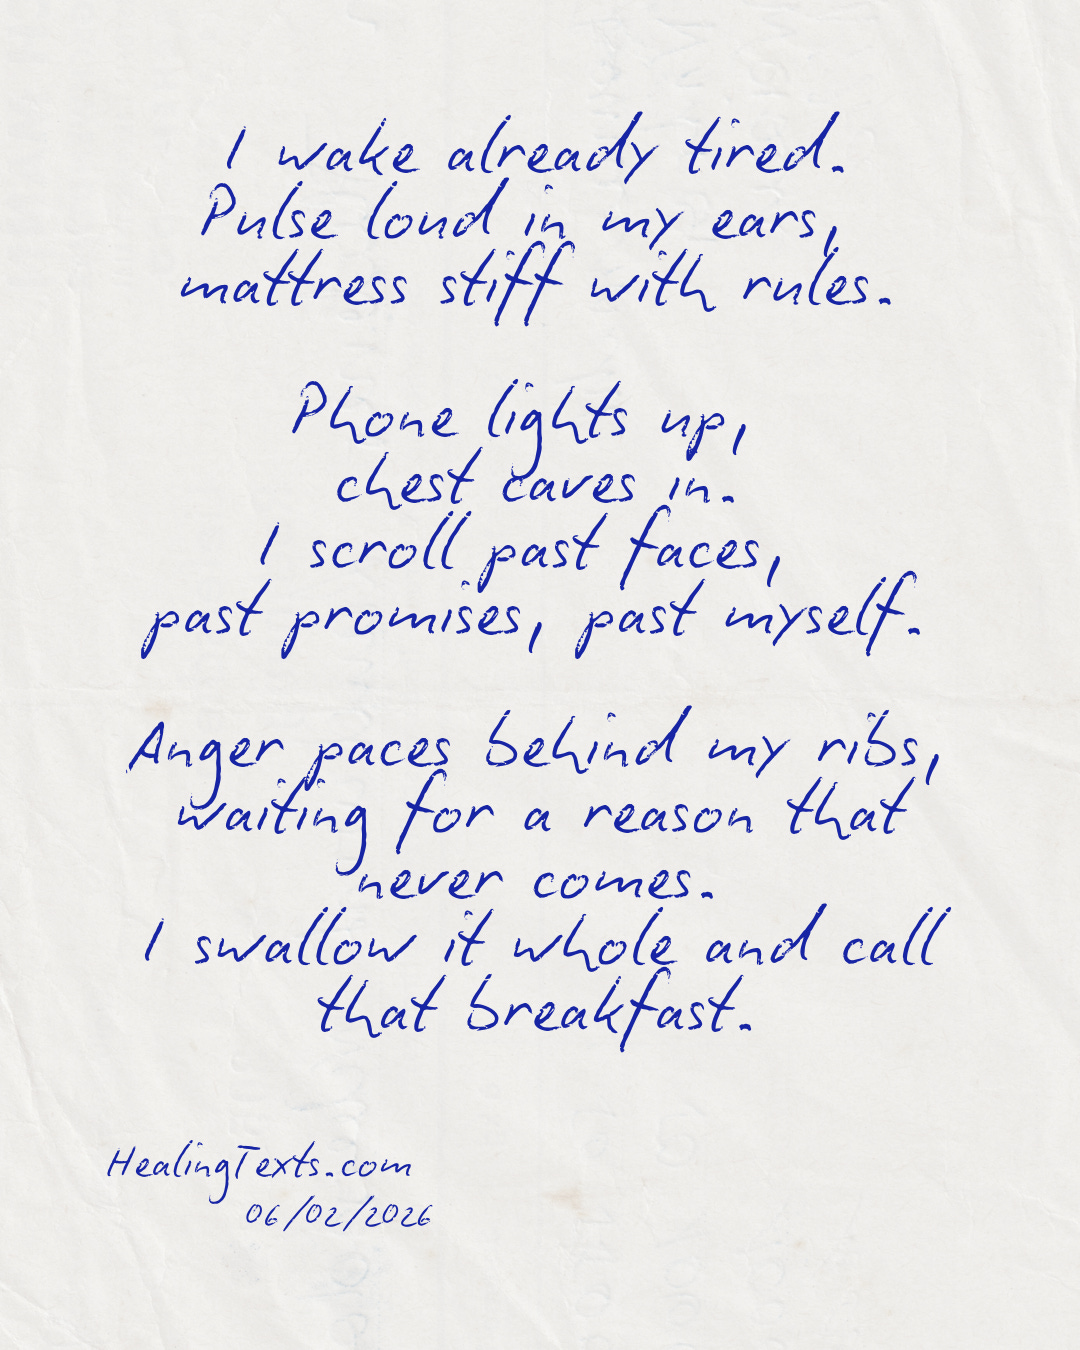 I wake already tired.
Pulse loud in my ears,
mattress stiff with rules.
Phone lights up,
chest caves in.
I scroll past faces,
past promises, past myself.
Anger paces behind my ribs,
waiting for a reason that
never comes.
I swallow it whole and call
that breakfast.
HealingTexts.com
06/02/2026